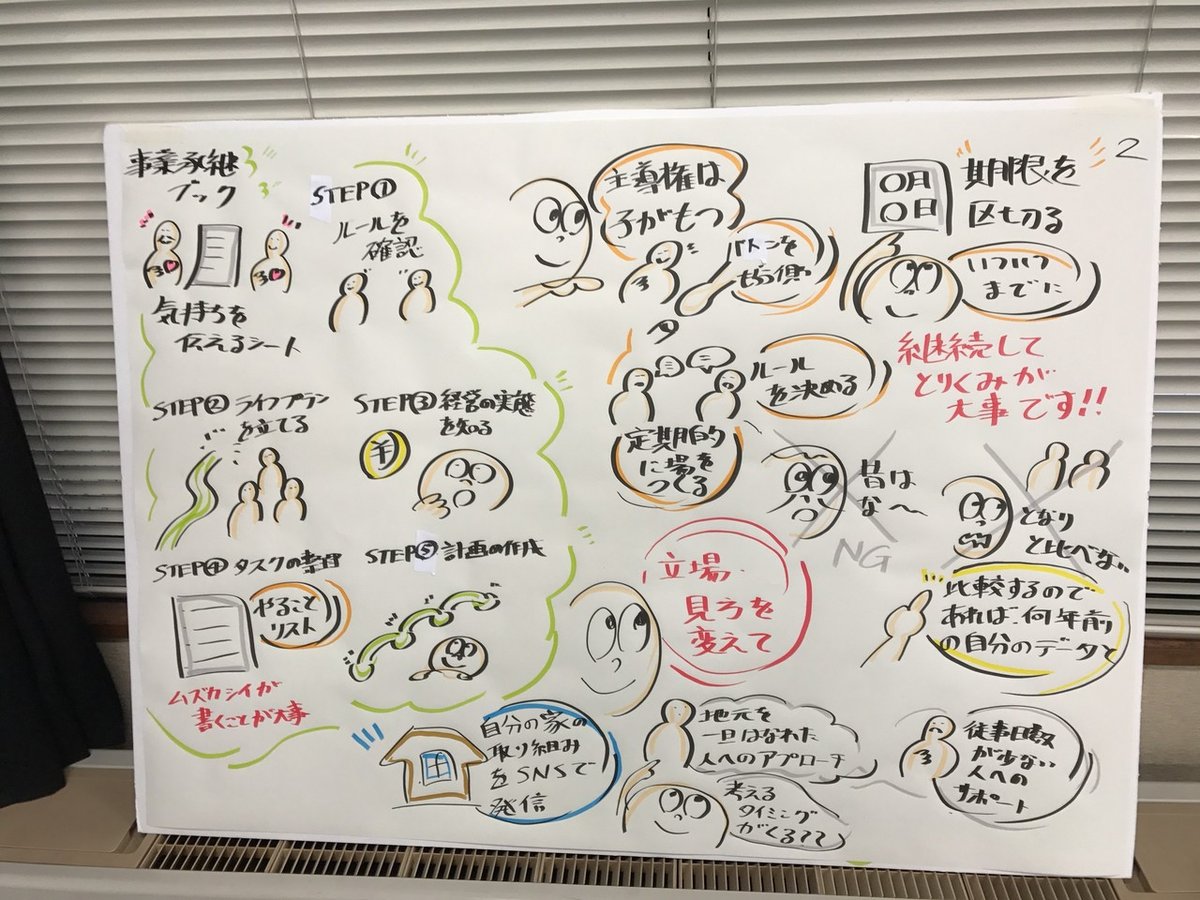 2
事業承継
ブック
気持ちを
伝えるシート
STEP①
ルールを
確認
STEP② ライフプラン
を立てる
STEP③ 経営の実態
を知る
¥
STEP④ タスクの
やること
リスト
ムズカシイが
書くことが大事
STEP⑤ 計画の作成
主導権は
子がもつ
バトンを
もらう側
〇月
〇日
期限を
区切る
いついつ
までに
ルール
を決める
定期的
に場を
つくる
継続して
とりくみが
大事です!!
昔は
な〜
NG
となり
と比べない
比較するので
あれば、何年前
の自分のデータと
立場、
見方を
変えて
自分の家の
取り組み
をSNSで
発信
地元を
一旦はなれた
人へのアプローチ
考える
タイミング
がくる??
従事日数
が少ない
人への
サポート